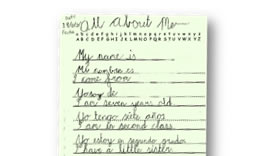 All About Me
abcdefghijklmnopqrstuvwxyz
ABCDEFGHIJKLMNOPQRSTUVWXYZ
My name is
Mi nombre es
I come from
Yo soy de
I am seven years old.
Yo tengo siete años
I am in second class
Yo estoy en segundo grado
I have a little sister